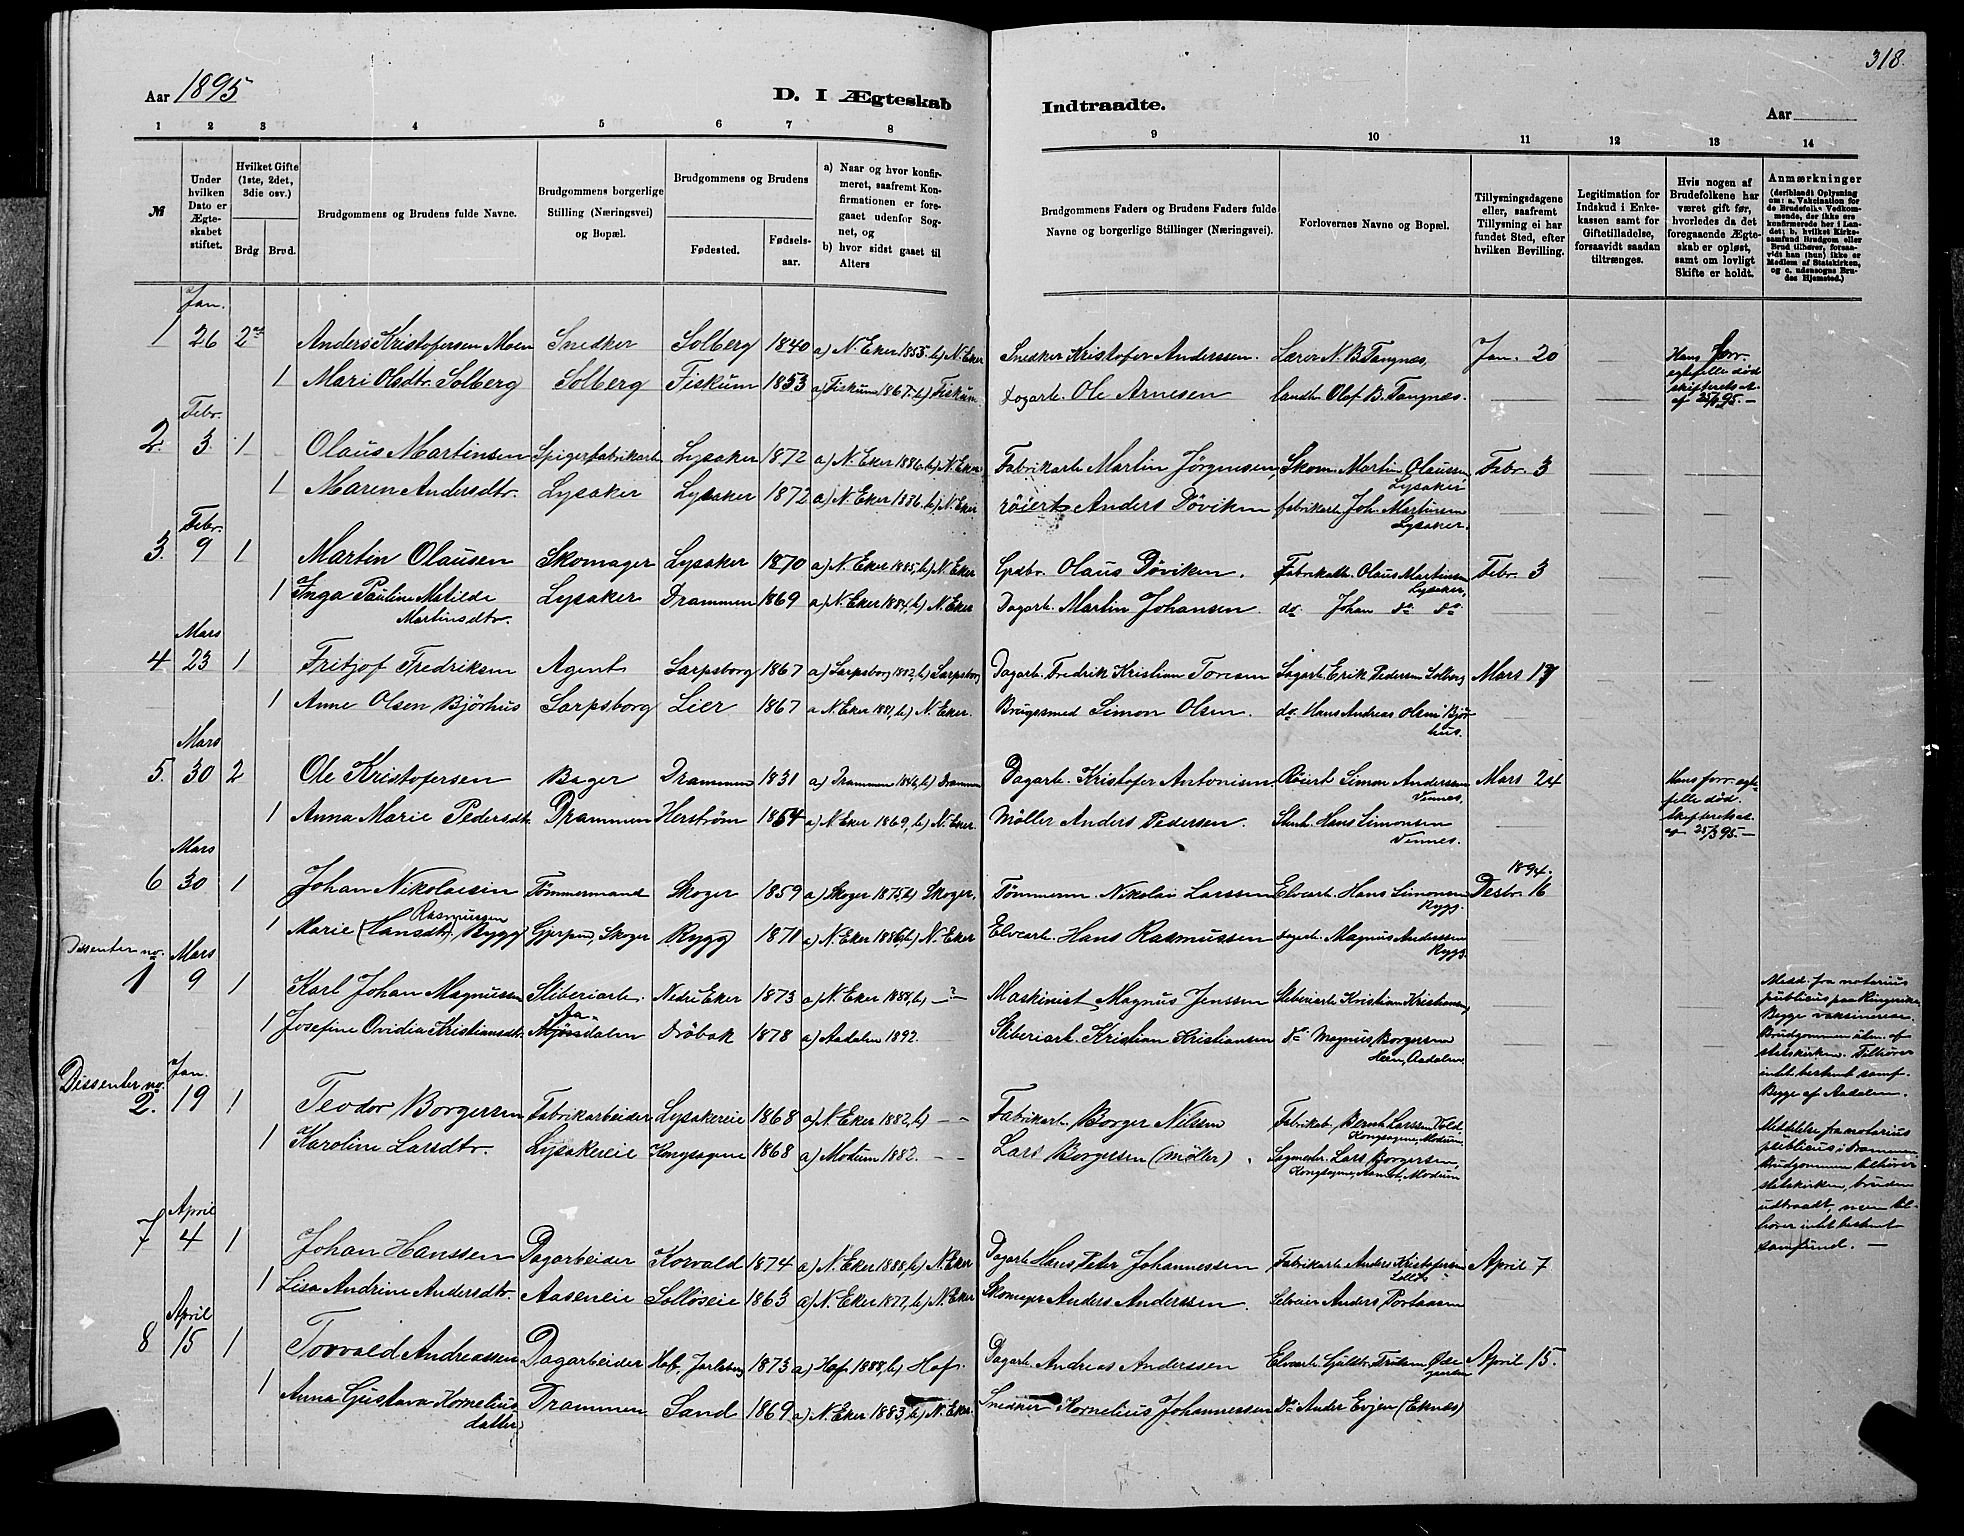 318.
Aar 1895
D. I Ægteskab Indtraadte.
Aar
1 2 3 4 5 6 7 8 9 10 11 12 13 14
№
Under hvilken Dato er Ægteskabet stiftet.
Hvilket Gifte (1ste, 2det, 3die osv.)
Brdg Brud.
Brudgommens og Brudens fulde Navne.
Brudgommens borgerlige Stilling (Næringsvei) og Bopæl.
Brudgommens og Brudens
Fødested. Fødsels-aar.
a) Naar og hvor konfirmeret, saafremt Konfirmationen er foregaaet udenfor Sognet, og
b) hvor sidst gaaet til Alters
Brudgommens Faders og Brudens Faders fulde Navne og borgerlige Stillinger (Næringsvei).
Forlovernes Navne og Bopæl.
Tillysningsdagene eller, saafremt Tillysning ei har fundet Sted, efter hvilken Bevilling.
Legitimation for Indskud i Enkekassen samt for Giftetilladelse, forsaavidt saadan tiltrænges.
Hvis nogen af Brudefolkene har været gift før, hvorledes da det foregaaende Ægteskab er opløst, samt om lovligt Skifte er holdt.
Anmærkninger (deriblandt Oplysning om: a. Vakcination for de Brudefolks Vedkommende, der ikke ere konfirmerede her i Landet; b. hvilket Kirkesamfund Brudgom eller Brud tilhører, forsaavidt han (hun) ikke er Medlem af Statskirken, og c. udensogns Brudes Hjemsted.)
Jan.
1 26 2det Anders Kristofersen Moen Snedker Solberg 1840 a) N. Eker 1855. b) N. Eker Snedker Kristofer Anderssen. Lærer N. B. Tangnæs, Jan. 20 Hans forr. egtefelle død skifteretsat. af 25/1 95.—
1 Mari Olsdtr. Solberg Solberg Fiskum 1853 a) Fiskum 1867. b) Fiskum Dagarb. Ole Arnesen Landh. Olaf B. Tangnæs.
Febr.
2. 3. 1 Olaus Martinsen Spigerfabrikarb. Lysaker 1872 a) N. Eker 1886. b) N. Eker Fabrikarb. Martin Jørgensen, Skom. Martin Olaussen Lysaker Febr. 3
1 Maren Andersdtr. Lysaker Lysaker 1872 a) N. Eker 1886. b) N. Eker røiert Anders Døviken fabrikarb. Joh. Martinsen Lysaker.
Febr.
3. 9 1 Martin Olausen Skomager Lysaker 1870 a) N. Eker 1885, b) N. Eker Olaus Døviken. Fabrikarb. Olaus Martinsen Lysaker, Febr. 3
1 Inga Pauline Matilde Martinsdtr. Lysaker Drammen 1869 a) N. Eker 1884, b) N. Eker Dagarb. Martin Johansen. do. Johan do do.
Mars
4 23 1 Fritjof Fredriksen Agent Sarpsborg 1867 a) Sarpsborg 1882, b) Sarpsborg Dagarb. Fredrik Kristian Toresen Sagarb. Erik Pedersen Solberg Mars 17
1 Anne Olsen Bjørhus Sarpsborg Lier 1867 a N. Eker 1881, b) N. Eker. Brugssmed Simon Olsen. do. Hans Andreas Olsen Bjørhus.
Mars
5. 30 2 Ole Kristofersen Bager Drammen 1831 a) Drammen 1846, b) Drammen Dagarb. Kristofer Antonisen Røiert Simon Anderssen Vinnes, Mars 24 Hans forr. egtefelle død. Skifteretsat. af 25/3 95.—
1 Anna Marie Pedersdtr. Drammen Herstrøm 1854 a) N. Eker 1869, b) N. Eker. Møller Anders Pedersen. Hans Simonsen Vinnes.
Mars
6 30 1 Johan Nikolaisen Tømmermand Skoger 1859 a) Skoger 1875, b) Skoger. Tømmerm. Nikolai Larssen Elvearb. Hans Simonsen Rygg. 1894. Desbr. 16
1 Marie (Hansdtr.) Rasmussen Rygg Gjerpen, Skoger Rygg 1871 a) N. Eker 1886, b) N. Eker Elvearb. Hans Rasmussen dagarb. Magnus Anderssen Rygg.
Dissenter no. Mars
1 9 1 Karl Johan Magnussen Sliberiarb. Nedre Eker 1873 a) N. Eker 1888, b) —?— Maskinist Magnus Jenssen Sliberiarb. Kristian Kristiansen, Medd. fra notarius publicus paa Ringerike. Begge vaksinerte. Brudgommen uten. af statskirken. Tilhører intet bestemt samf. Begge af Aadalen.
1 Josefine Ovidia Kristiansdtr. Aadalen Drøbak 1878 a) Aadalen 1892. Sliberiarb. Kristian Kristiansen do Magnus Borgersen Hern, Aadalen.
Dissenter no. Jan.
2. 19 1 Teodor Borgersen Fabrikarbeider Lysakereie 1868 a) N. Eker 1882, b) — Fabrikarb. Borger Nilssen Fabrikarb. Bernh. Larssen Kold Kongsagene, Modum Meddelse fra notarius publicus i Drammen Brudgommen tilhører statskirken, bruden udtraadt, men tilhører intet bestemt samfund. —
1 Karoline Larsdtr. Lysakereie Kongsagene 1868 a) Modum 1882. — Lars Borgersen (møller). Sagmester Lars Borgersen, Kongsagene, Aamot, Modum
April
7 4 1 Johan Hanssen Dagarbeider Korvald 1874 a) N. Eker 1888, b) N. Eker Dagarb. Hans Peter Johannessen Fabrikarb. Anders Kristofersen April 7
1 Lisa Andrine Andersdtr. Aaseneie Solløseie 1863 a) N. Eker 1877, b) N. Eker Skomager Anders Anderssen. Selveier Anders Portaasen
April
8 15 1 Torvald Andreassen Dagarbeider Hof, Jarlsberg 1873 a) Hof. 1888, b) Hof. Dagarb. Andreas Anderssen Elvearb. April 15.
1 Anna Gustava Korneliusdatter Drammen Sand 1869 a) N. Eker 1883, b) N. Eker. Snedker Kornelius Johannessen Do Ander Evjen (Eknæs)